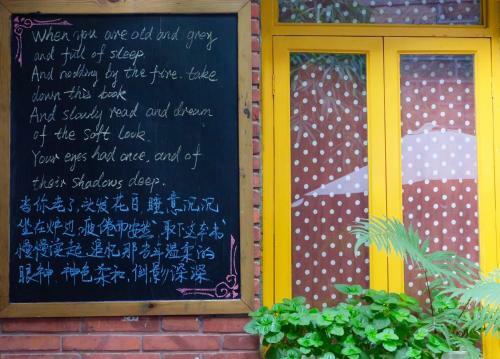 When you are old and grey
and full of sleep
And nodding by the fire. take
down this book
And slowly read and dream
of the soft look
Your eyes had once, and of
their shadows deep.
当你老了,头发花白,睡意沉沉
坐在炉边 取下这本书
慢慢读起,追忆那当年温柔的
眼神,神色柔和,倒影深深